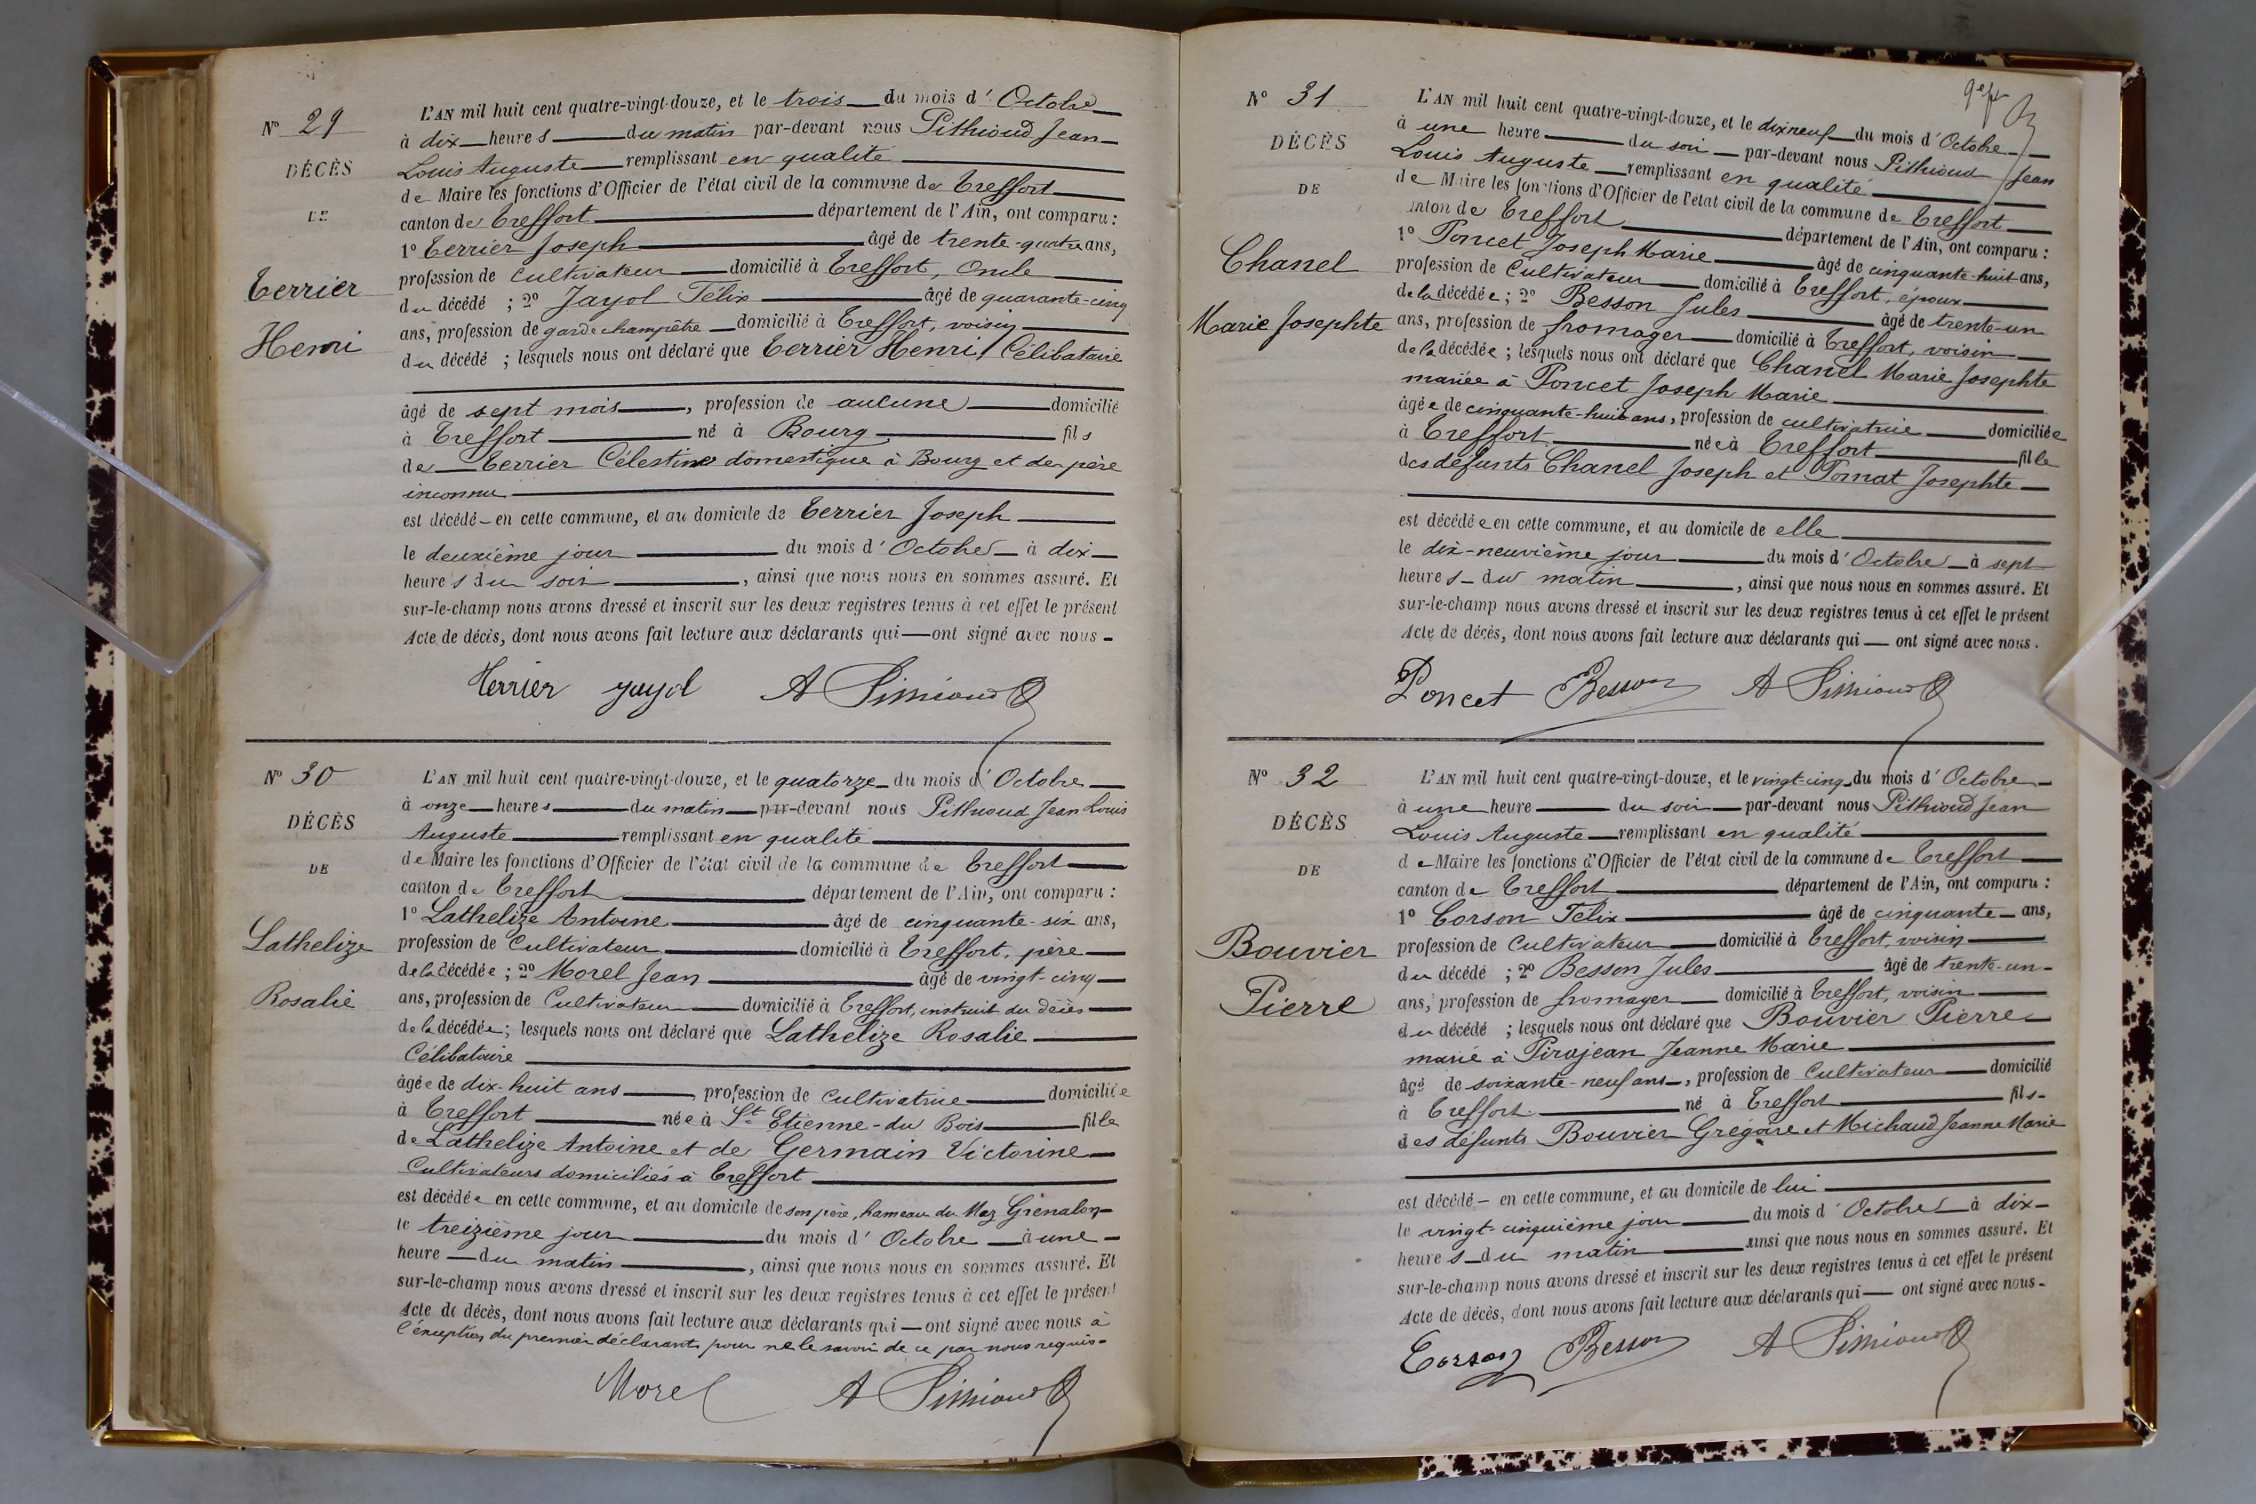 N° 29
DÉCÈS
DE
Terrier
Henri
L'AN mil huit cent quatre-vingt-douze, et le trois du mois d'Octobre
à dix heures du matin par-devant nous Pithioud Jean
Louis Auguste remplissant en qualité
de Maire les fonctions d'Officier de l'état civil de la commune de Treffort
canton de Treffort département de l'Ain, ont comparu :
1° Terrier Joseph âgé de trente-quatre ans,
profession de Cultivateur domicilié à Treffort, Oncle
du décédé ; 2° Jayol Félix âgé de quarante-cinq
ans, profession de garde champêtre domicilié à Treffort, voisin
du décédé ; lesquels nous ont déclaré que Terrier Henri, Célibataire
âgé de sept mois, profession de aucune domicilié
à Treffort né à Bourg fils
de Terrier Célestine domestique à Bourg et de père
inconnu
est décédé en cette commune, et au domicile de Terrier Joseph
le deuxième jour du mois d'Octobre à dix
heures du soir, ainsi que nous nous en sommes assuré. Et
sur-le-champ nous avons dressé et inscrit sur les deux registres tenus à cet effet le présent
Acte de décès, dont nous avons fait lecture aux déclarants qui ont signé avec nous
Terrier Jayol A Pithioud
N° 30
DÉCÈS
DE
Lathelize
Rosalie
L'AN mil huit cent quatre-vingt-douze, et le quatorze du mois d'Octobre
à onze heures du matin par-devant nous Pithioud Jean Louis
Auguste remplissant en qualité
de Maire les fonctions d'Officier de l'état civil de la commune de Treffort
canton de Treffort département de l'Ain, ont comparu :
1° Lathelize Antoine âgé de cinquante-six ans,
profession de Cultivateur domicilié à Treffort, père
de la décédée ; 2° Morel Jean âgé de vingt-cinq
ans, profession de Cultivateur domicilié à Treffort, instruit du décès
de la décédée ; lesquels nous ont déclaré que Lathelize Rosalie
Célibataire
âgée de dix-huit ans, profession de cultivatrice domiciliée
à Treffort née à St Etienne-du Bois fille
de Lathelize Antoine et de Germain Victorine
Cultivateurs domiciliés à Treffort
est décédée en cette commune, et au domicile de son père, hameau du Maz Grenalon
le treizième jour du mois d'Octobre à une
heure du matin, ainsi que nous nous en sommes assuré. Et
sur-le-champ nous avons dressé et inscrit sur les deux registres tenus à cet effet le présent
Acte de décès, dont nous avons fait lecture aux déclarants qui ont signé avec nous à
l'exception du premier déclarant pour ne le savoir de ce par nous requis
Morel A Pithioud
N° 31
DÉCÈS
DE
Chanel
Marie Josephte
L'AN mil huit cent quatre-vingt-douze, et le dix neuf du mois d'Octobre
à une heure du soir par-devant nous Pithioud Jean
Louis Auguste remplissant en qualité
de Maire les fonctions d'Officier de l'état civil de la commune de Treffort
canton de Treffort département de l'Ain, ont comparu :
1° Poncet Joseph Marie âgé de cinquante-huit ans,
profession de Cultivateur domicilié à Treffort, époux
de la décédée ; 2° Besson Jules âgé de trente-un
ans, profession de fromager domicilié à Treffort, voisin
de la décédée ; lesquels nous ont déclaré que Chanel Marie Josephte
mariée à Poncet Joseph Marie
âgée de cinquante-huit ans, profession de cultivatrice domiciliée
à Treffort née à Treffort fille
des défunts Chanel Joseph et Pornat Josephte
est décédée en cette commune, et au domicile de elle
le dix-neuvième jour du mois d'Octobre à sept
heures du matin, ainsi que nous nous en sommes assuré. Et
sur-le-champ nous avons dressé et inscrit sur les deux registres tenus à cet effet le présent
Acte de décès, dont nous avons fait lecture aux déclarants qui ont signé avec nous.
Poncet Besson A Pithioud
N° 32
DÉCÈS
DE
Bouvier
Pierre
L'AN mil huit cent quatre-vingt-douze, et le vingt-cinq du mois d'Octobre
à une heure du soir par-devant nous Pithioud Jean
Louis Auguste remplissant en qualité
de Maire les fonctions d'Officier de l'état civil de la commune de Treffort
canton de Treffort département de l'Ain, ont comparu :
1° Corson Félix âgé de cinquante ans,
profession de Cultivateur domicilié à Treffort, voisin
du décédé ; 2° Besson Jules âgé de trente-un
ans, profession de fromager domicilié à Treffort, voisin
du décédé ; lesquels nous ont déclaré que Bouvier Pierre
marié à Pirajean Jeanne Marie
âgé de soixante-neuf ans, profession de Cultivateur domicilié
à Treffort né à Treffort fils
des défunts Bouvier Grégoire et Michaud Jeanne Marie
est décédé en cette commune, et au domicile de lui
le vingt-cinquième jour du mois d'Octobre à dix
heures du matin ainsi que nous nous en sommes assuré. Et
sur-le-champ nous avons dressé et inscrit sur les deux registres tenus à cet effet le présent
Acte de décès, dont nous avons fait lecture aux déclarants qui ont signé avec nous
Corson Besson A Pithioud